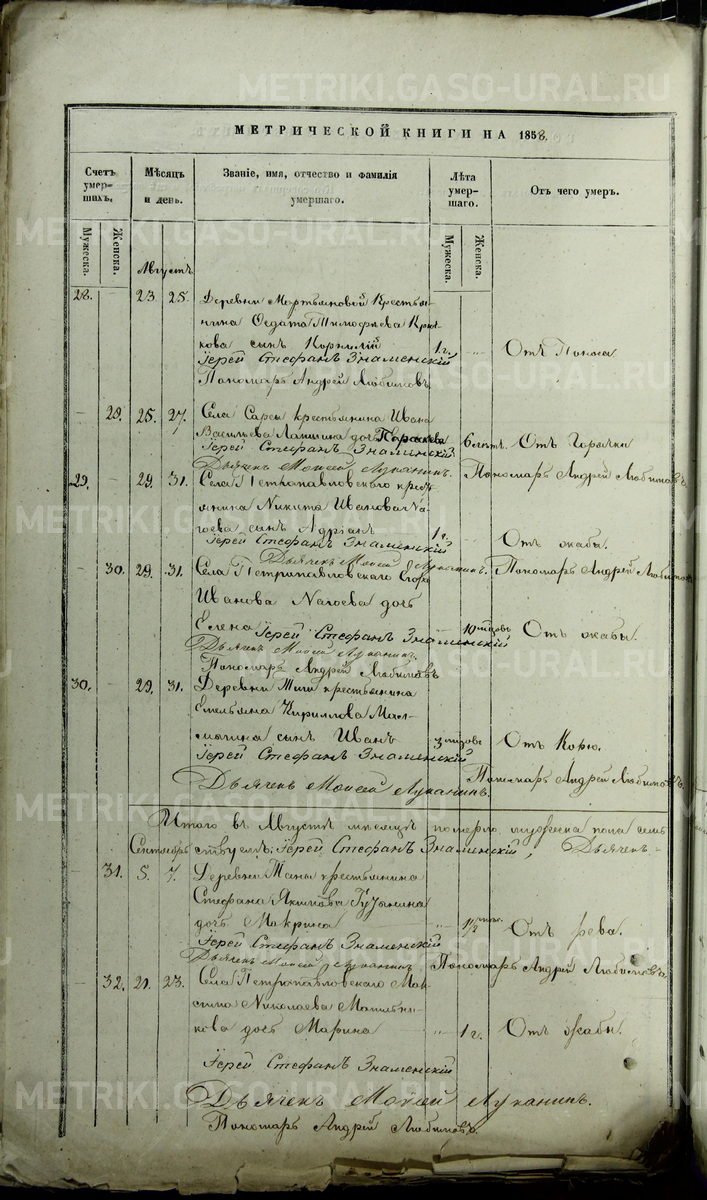 METRIKI.GASO-URAL.RU
МЕТРИЧЕСКОЙ КНИГИ НА 1858.
Счетъ умер-шихъ.
Мужеска.
Женска.
Мѣсяцъ и день.
Званіе, имя, отчество и фамилія умершаго.
Лѣта умер-шаго.
Мужеска.
Женска.
Отъ чего умеръ.
Августъ
28. 23. 25. Деревни Мартьяновой Крестья-
нина Федота Тимофеева Крю-
кова сынъ Корнилій 1 г. Отъ Поноса
Іерей Стефанъ Знаменскій
Пономарь Андрей Любимовъ
29. 25. 27. Села Сарсы крестьянина Ивана
Васильева Лапшина дочь Параскева 6 лѣтъ. Отъ Горячки
Іерей Стефанъ Знаменскій
Дьячекъ Моисей Луканинъ. Пономарь Андрей Любимовъ
29. 29. 31. Села Петропавловскаго крест-
янина Никиты Иванова На-
гоева сынъ Адріанъ 1 г. Отъ жабы.
Іерей Стефанъ Знаменскій
Дьячекъ Моисей Луканинъ. Пономарь Андрей Любимовъ
30. 29. 31. Села Петропавловскаго Егора
Иванова Нагоева дочь
Елена 10 мѣсяцовъ Отъ жабы.
Іерей Стефанъ Знаменскій
Дьячекъ Моисей Луканинъ.
Пономарь Андрей Любимовъ
30. 29. 31. Деревни крестьянина
Емельяна Кириллова
сынъ Иванъ 3 мѣсяцовъ Отъ Корю.
Іерей Стефанъ Знаменскій
Дьячекъ Моисей Луканинъ. Пономарь Андрей Любимовъ
Итого въ Августѣ мѣсяцѣ померло мужеска пола семь
Іерей Стефанъ Знаменскій, Дьячекъ
Сентябрь
31. 5. 7. Деревни крестьянина
Стефана Якимова
дочь Макрина 1 1/2 Отъ рева.
Іерей Стефанъ Знаменскій
Дьячекъ Моисей Луканинъ Пономарь Андрей Любимовъ
32. 21. 23. Села Петропавловскаго Мак-
сима Николаева
кова дочь Марина 1 г. Отъ жабы.
Іерей Стефанъ Знаменскій
Дьячекъ Моисей Луканинъ.
Пономарь Андрей Любимовъ.